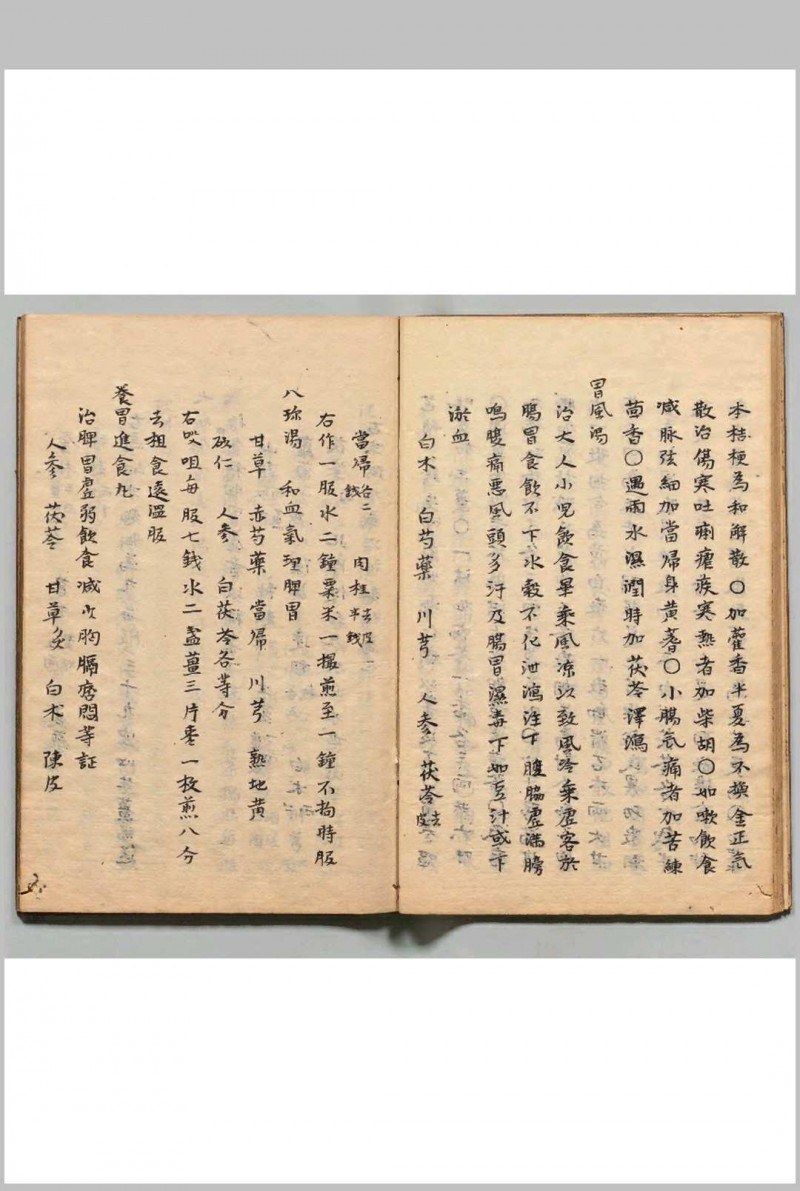 本桔梗為和解散〇加藿香半夏為不換金正氣
散治傷寒吐痢瘧疾寒熱者加柴胡〇如嗽飲食
减脉弦細加當帰身黄蓍〇小腸気痛者加苦練
茴香〇遇雨水濕潤時加茯苓澤瀉
胃風湯
治大人小児飲食畢乘風凉以致風冷乘虚客於
腸胃食飲不下水穀不化泄瀉注下腹脇虚满膓
鳴腹痛悪風頭多汗及膓胃濕毒下如豆汁或下
淤血
白术 白芍藥 川芎 人参 茯苓去皮
當帰各二銭 肉桂去皮一半銭
右作一服水二鐘粟米一撮煎至一鐘不拘時服
八珎湯 和血氣理脾胃
甘草 赤芍藥 當帰 川芎 熟地黄
砍仁 人参 白茯苓各等分
右㕮咀每服七銭水二盞薑三片枣一枚煎八分
去粗食遠温服
養胃進食丸
治脾胃虚弱飲食减少胸膈痞悶等証
人参 茯苓 甘草炙 白术 陳皮